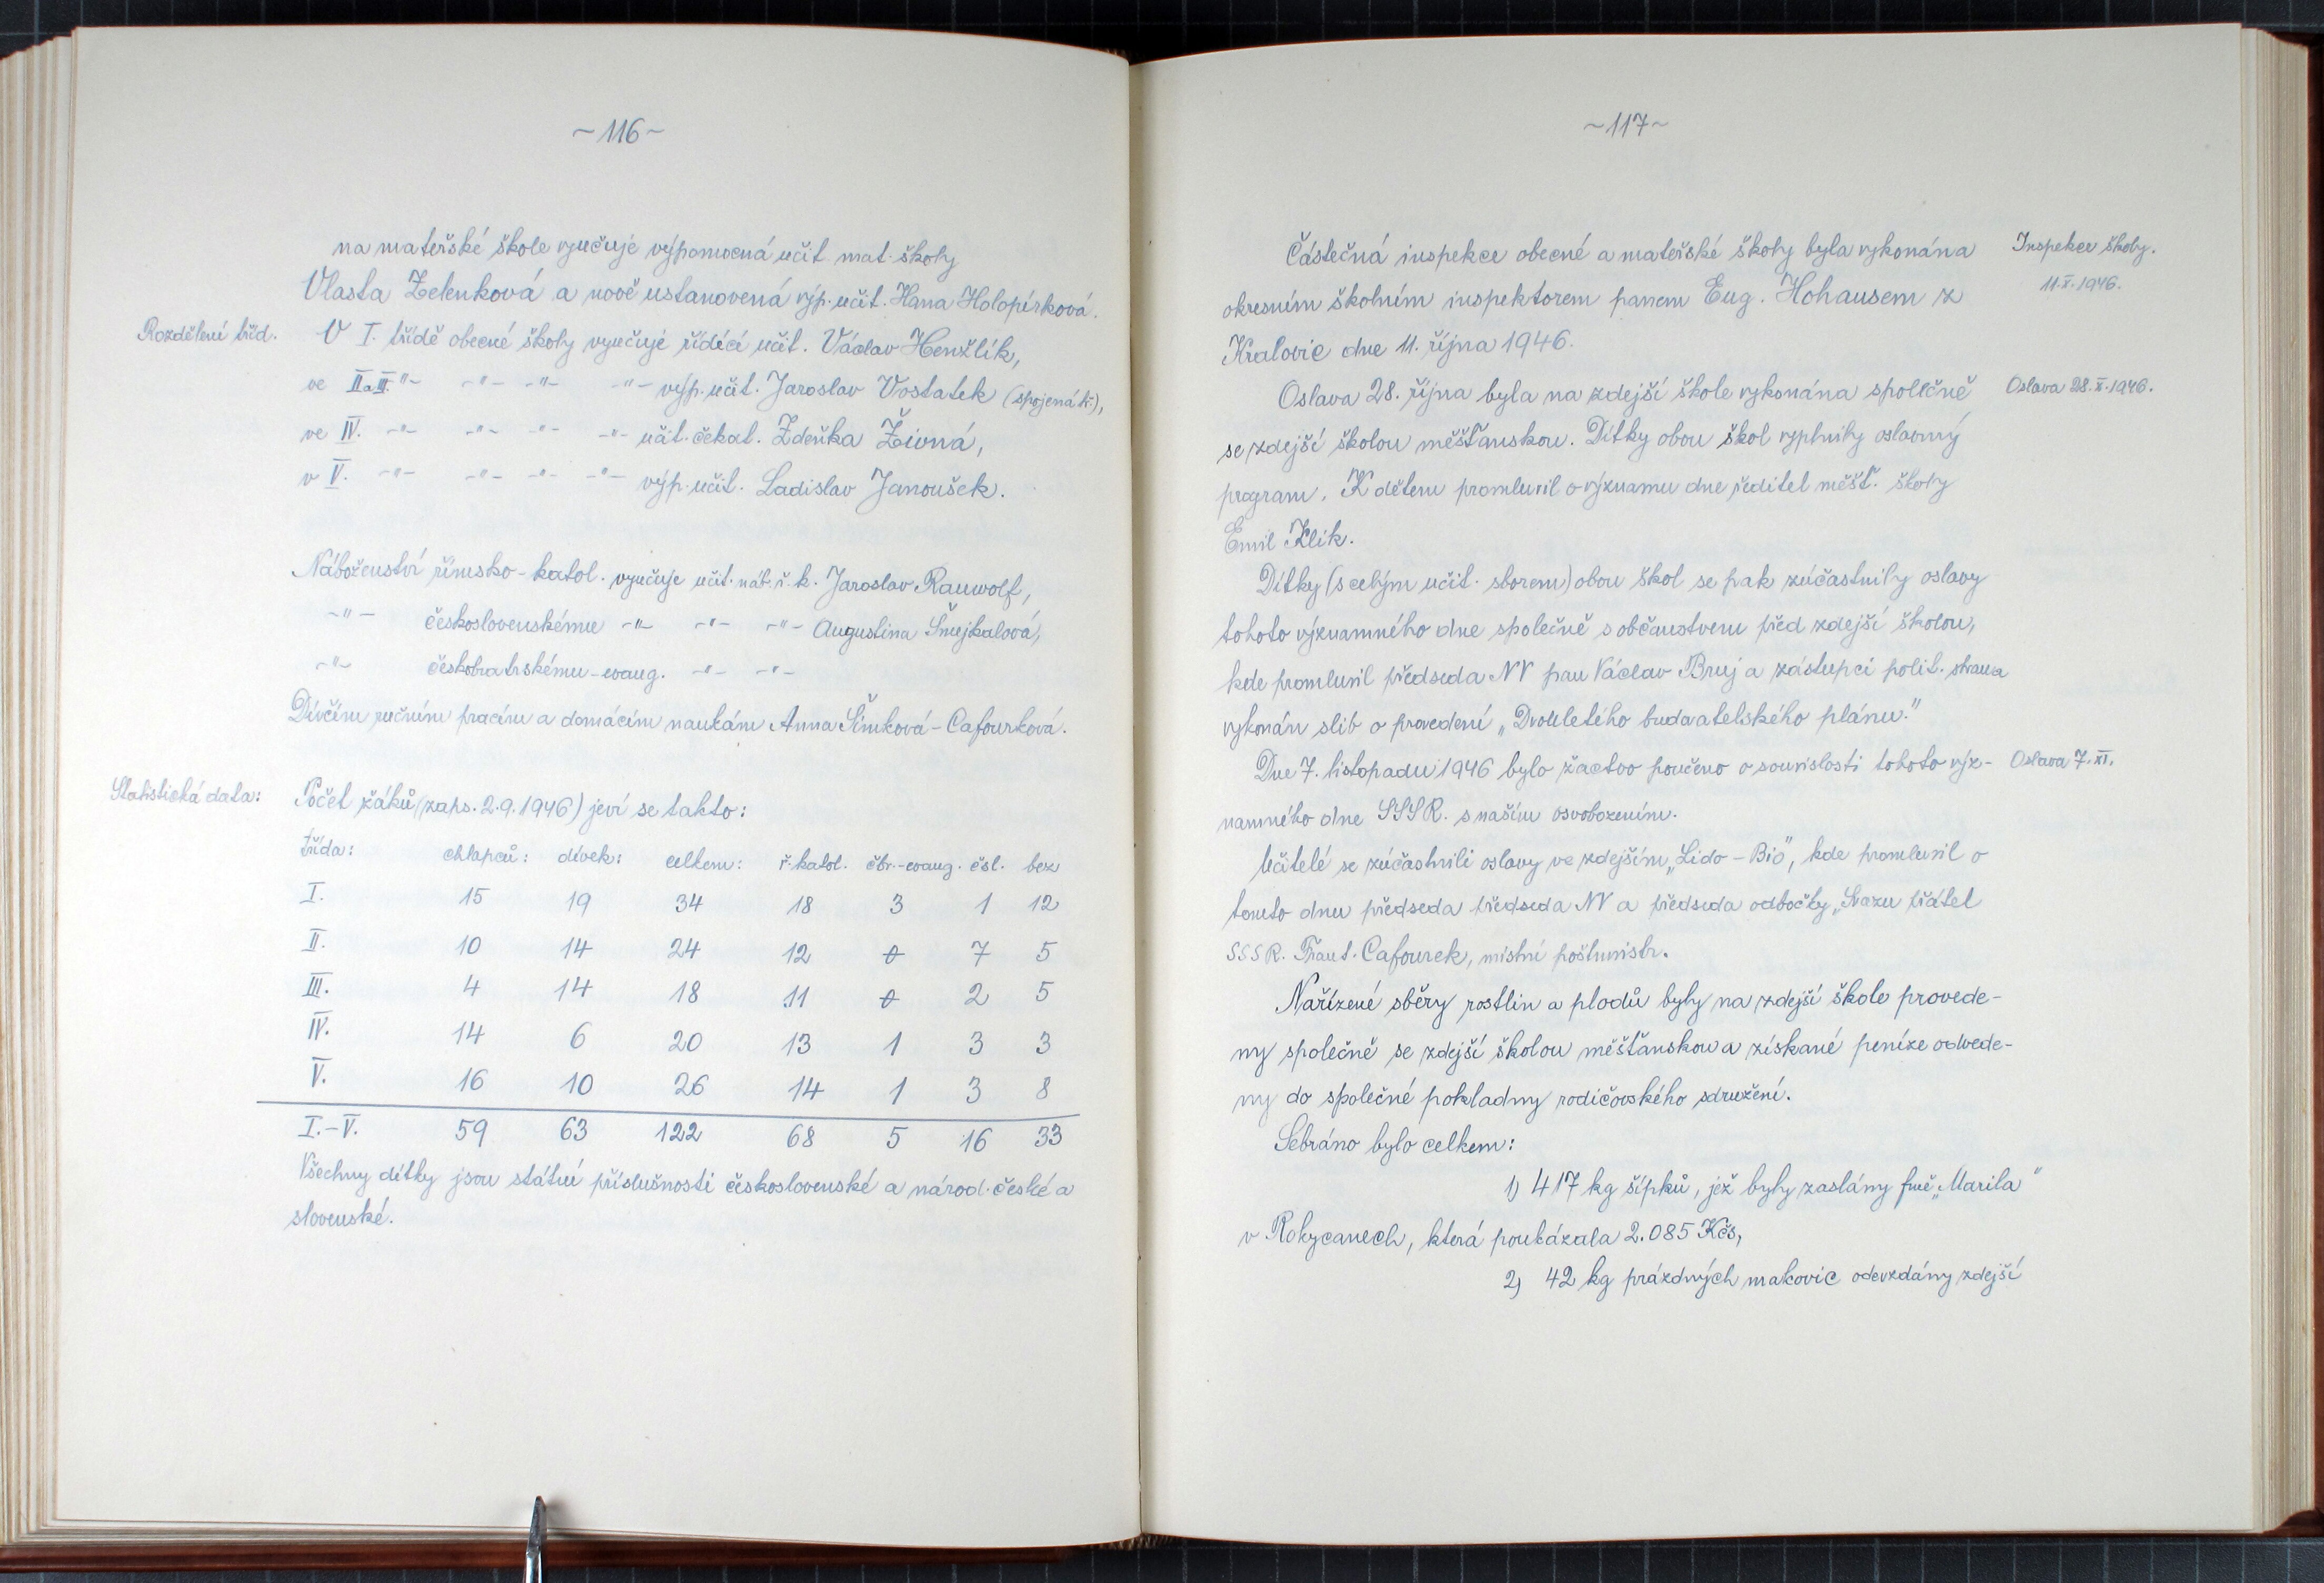 ~116~
na mateřské škole vyučuje výpomocná učit. mat. školy
Vlasta Zelenková a nově ustanovená výp. učit. Hana Holopírková.
Rozdělení tříd.
V I. třídě obecné školy vyučuje řídící učit. Václav Henžlík,
ve II a III. -"- -"- -"- -"- výp. učit. Jaroslav Vostatek (spojená tř.),
ve IV. -"- -"- -"- -"- učit. čekat. Zdeňka Živná,
v V. -"- -"- -"- -"- výp. učit. Ladislav Janoušek.
Náboženství římsko-katol. vyučuje učit. náb. ř. k. Jaroslav Rauwolf,
-"- československému -"- -"- -"- Augustina Šmejkalová,
-"- českobratrskému-evang. -"- -"-
Dívčím ručním pracím a domácím naukám Anna Šimková-Cafourková.
Statistická data:
Počet žáků (zaps. 2.9.1946) jeví se takto:
třída: chlapců: dívek: celkem: ř. katol. čbr.-evang. čsl. bez
I. 15 19 34 18 3 1 12
II. 10 14 24 12 0 7 5
III. 4 14 18 11 0 2 5
IV. 14 6 20 13 1 3 3
V. 16 10 26 14 1 3 8
I.-V. 59 63 122 68 5 16 33
Všechny dítky jsou státní příslušnosti československé a národ. české a
slovenské.
~117~
Částečná inspekce obecné a mateřské školy byla vykonána
Inspekce školy.
11.X.1946.
okresním školním inspektorem panem Eug. Hohausem z
Kralovic dne 11. října 1946.
Oslava 28. října byla na zdejší škole vykonána společně
Oslava 28.X.1946.
se zdejší školou měšťanskou. Dítky obou škol vyplnily oslavný
program. K dětem promluvil o významu dne ředitel měšť. školy
Emil Klik.
Dítky (s celým učit. sborem) obou škol se pak zúčastnily oslavy
tohoto významného dne společně s občanstvem před zdejší školou,
kde promluvil předseda NV pan Václav Bruj a zástupci polit. stran a
vykonán slib o provedení „Dvouletého budovatelského plánu."
Dne 7. listopadu 1946 bylo žactvo poučeno o souvislosti tohoto výz-
Oslava 7.XI.
namného dne SSSR. s naším osvobozením.
Učitelé se zúčastnili oslavy ve zdejším „Lido-Bio", kde promluvil o
tomto dnu předseda předseda NV a předseda odbočky „Svazu přátel
SSSR. Frant. Cafourek, místní poštmistr.
Nařízené sběry rostlin a plodů byly na zdejší škole provede-
ny společně se zdejší školou měšťanskou a získané peníze odvede-
ny do společné pokladny rodičovského sdružení.
Sebráno bylo celkem:
1) 417 kg šípků, jež byly zaslány fmě „Marila"
v Rokycanech, která poukázala 2.085 Kčs,
2) 42 kg prázdných makovic odevzdány zdejší